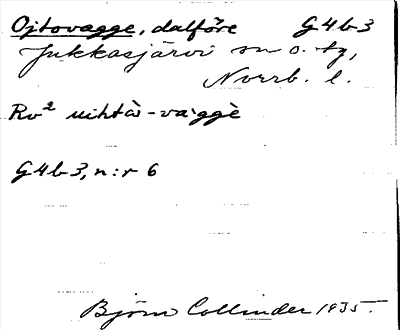 Ojtovagge, dalföre G4b3
Jukkasjärvi sn o. tg,
Norrb. l.
Rv² uihtà-vaggè
G4b3, n:r 6
Björn Collinder 1935.